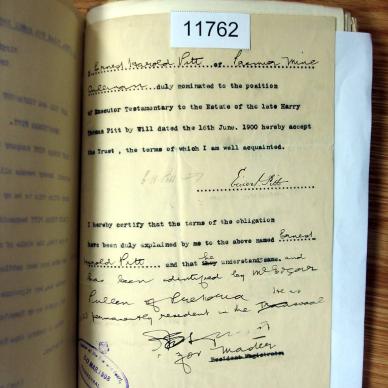 11762
I Ernest Harold Pitt of Premier Mine
Cullinan duly nominated to the position
of Executor Testamentary to the Estate of the late Harry
Thomas Pitt by Will dated the 16th June. 1900 hereby accept
the Trust , the terms of which I am well acquainted.
Ernest Pitt
I hereby certify that the terms of the obligation
have been duly explained by me to the above named Ernest
Harold Pitt and that he understands same. and
has been identified by Mr Edgar
Pullen of Pretoria He is
permanently resident in the Transvaal
for Master
Resident Magistrate